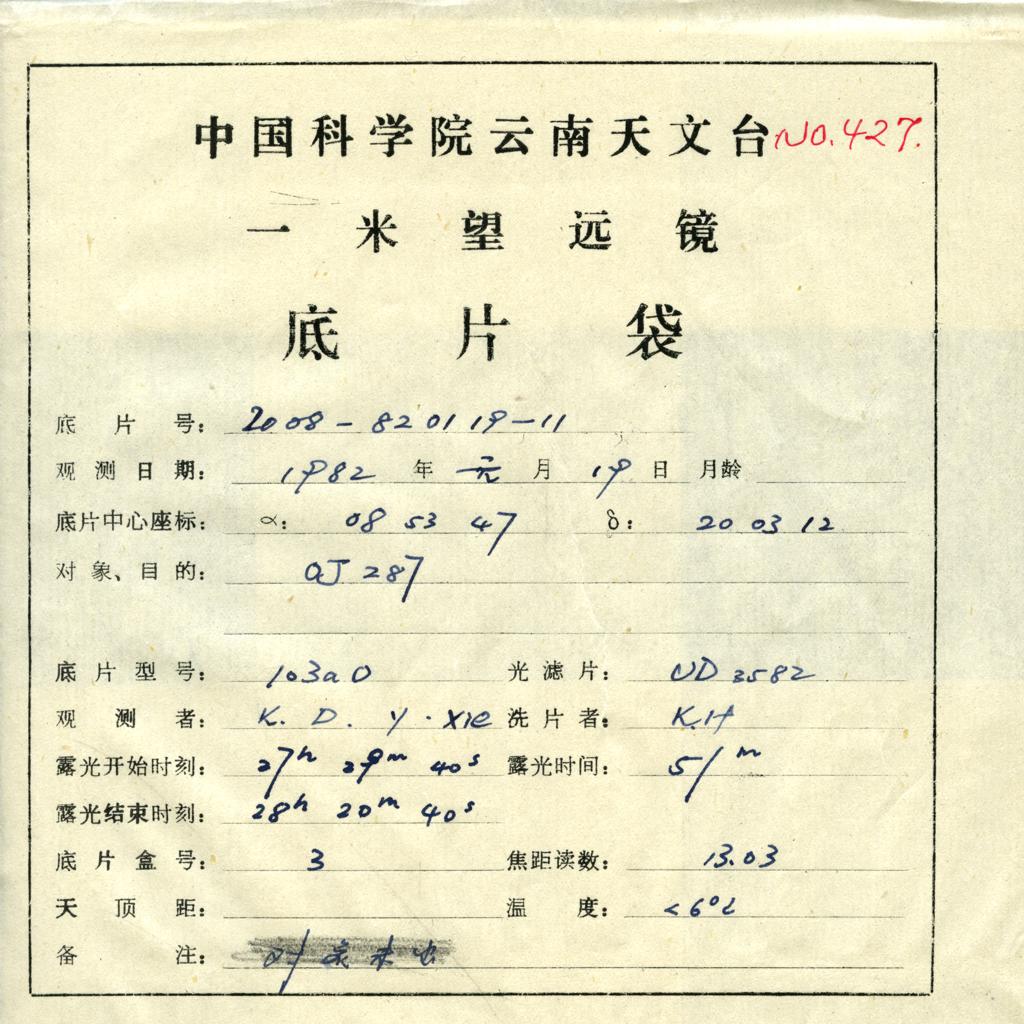 中国科学院云南天文台 NO.427.
一米望远镜
底片袋
底片号: 2008-820119-11
观测日期: 1982 年 元 月 19 日 月龄
底片中心座标: α: 08 53 47 δ: 20 03 12
对象、目的: OJ 287
底片型号: 103aO 光滤片: UD 3582
观测者: K. D. Y. Xie 洗片者: K.H
露光开始时刻: 27h 29m 40s 露光时间: 51m
露光结束时刻: 28h 20m 40s
底片盒号: 3 焦距读数: 13.03
天顶距: 温度: <6°C
备注: